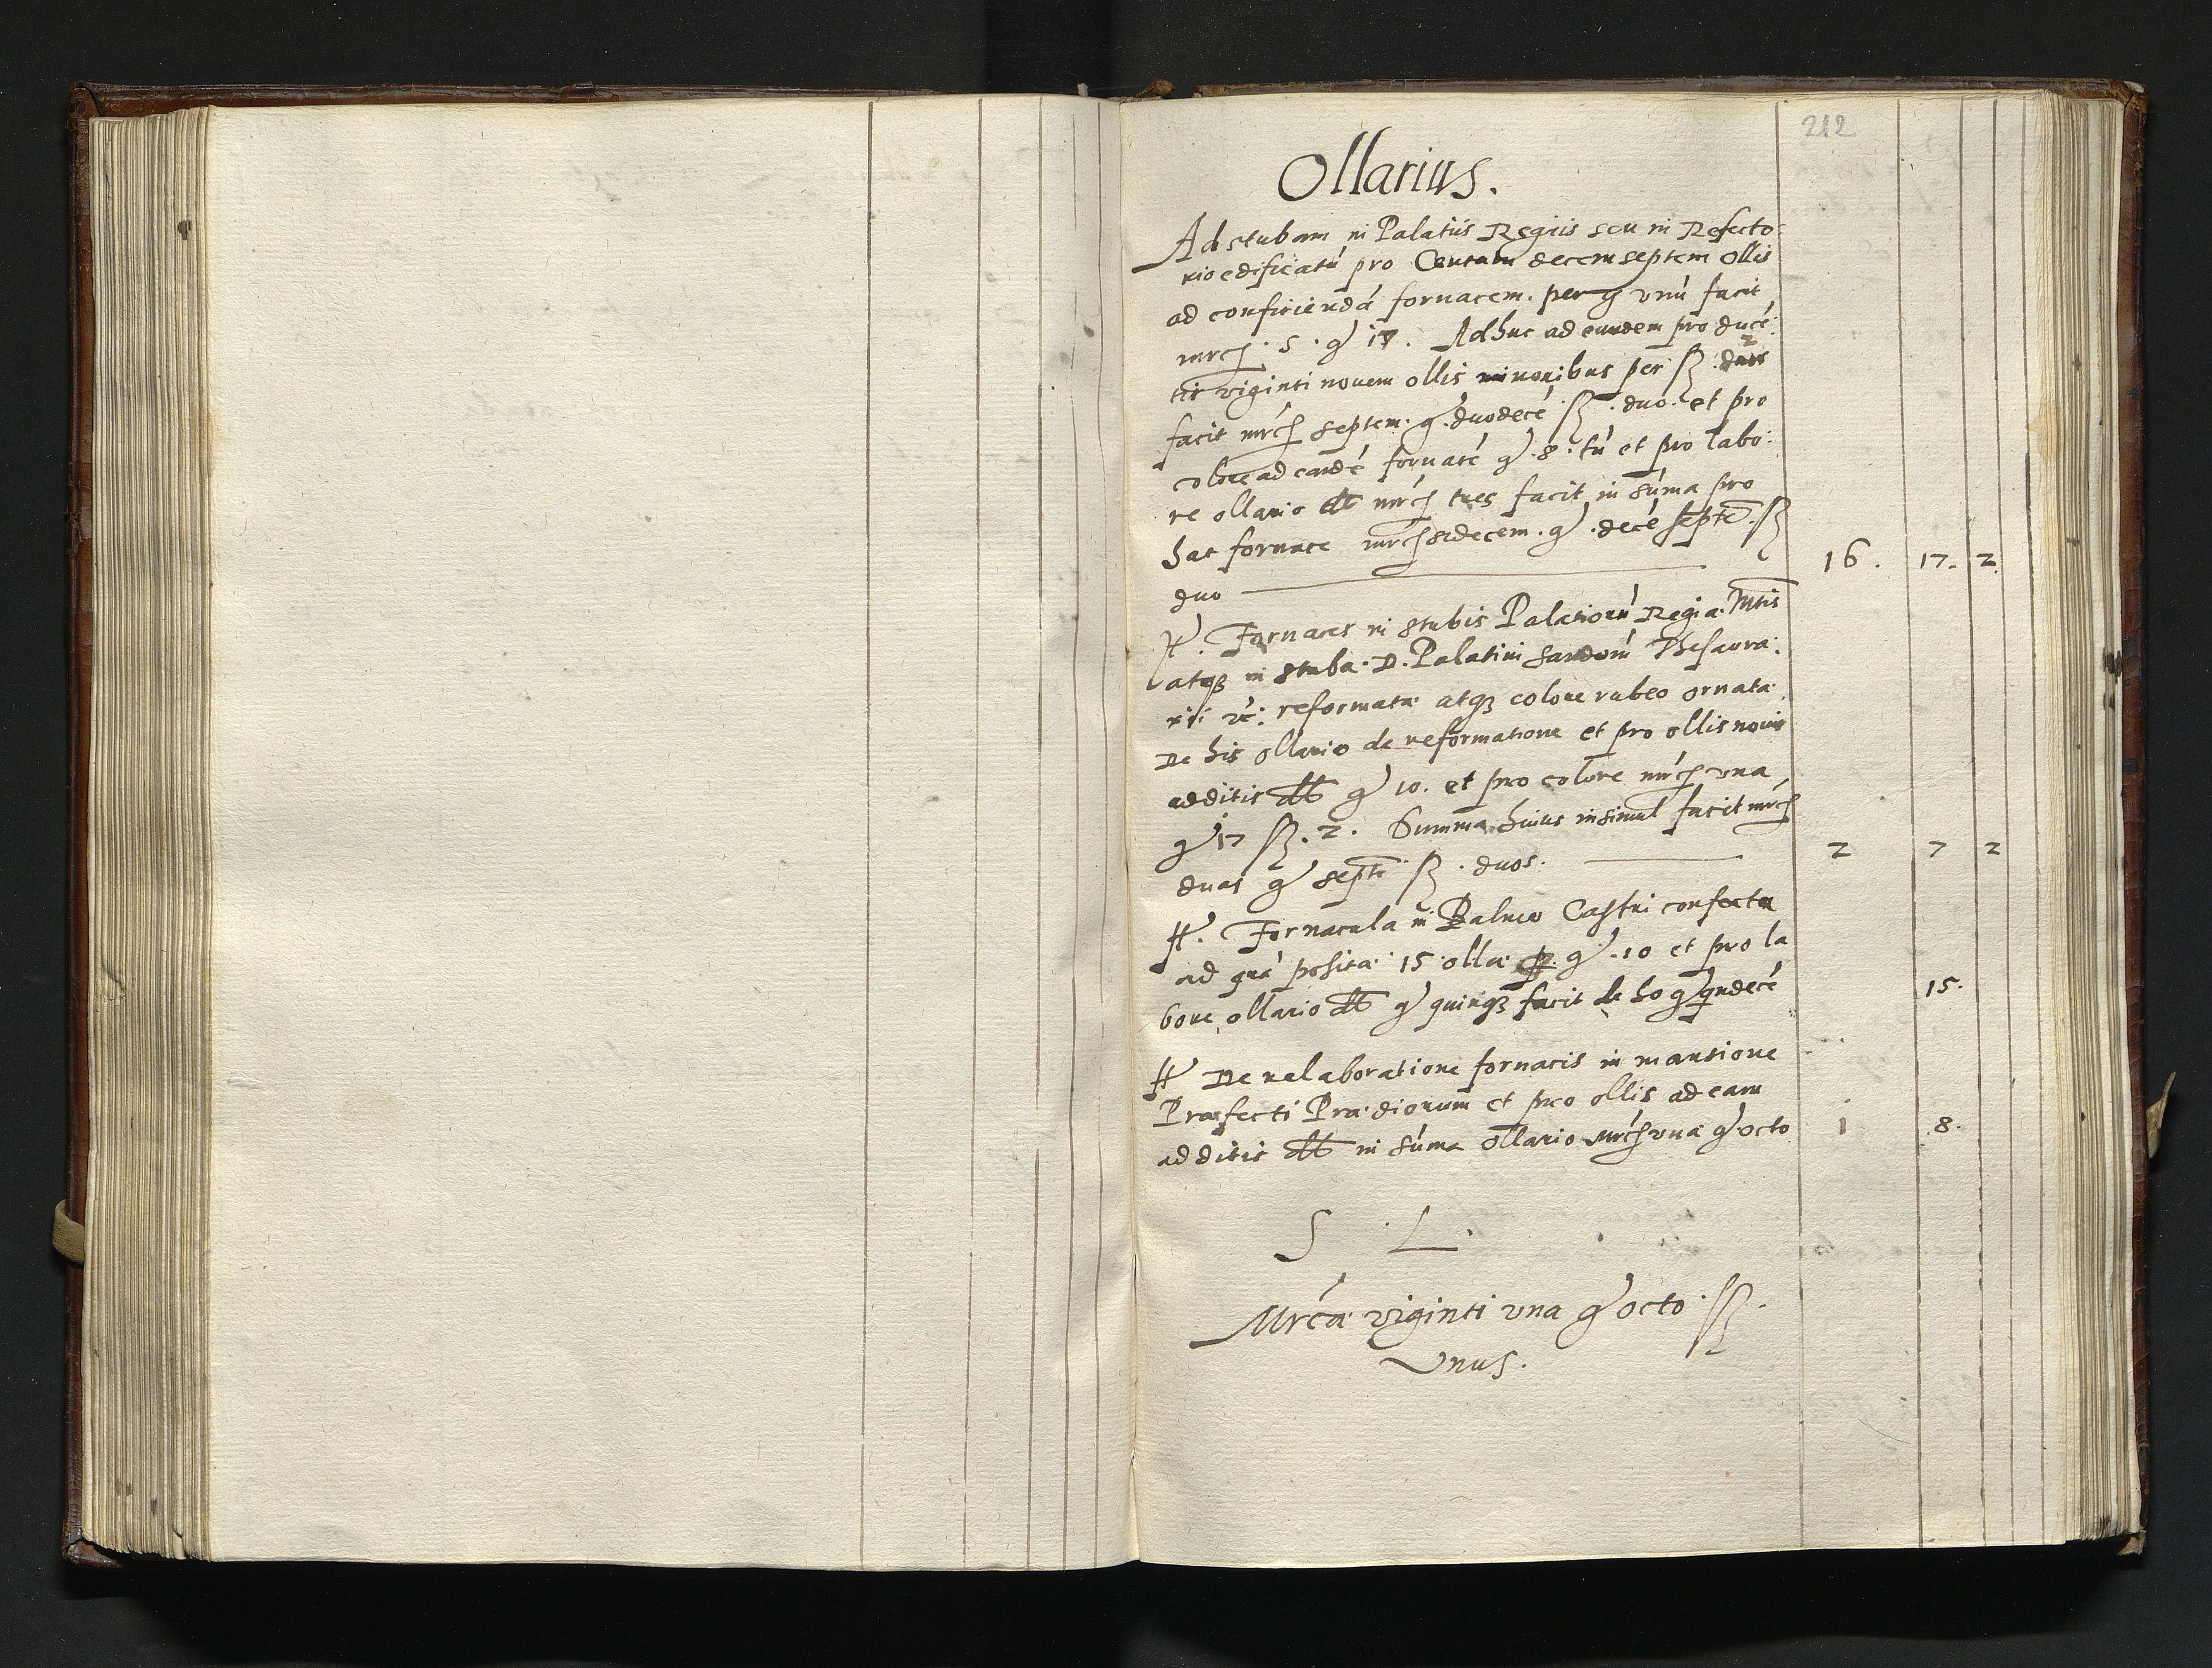 212
Ollarius.
Ad stubam in Palatiis Regiis seu in Refecto:
rio edificatú pro Centum decem septem ollis
ad conficiendá fornacem. per g vnú facit
mrcę . 5 . g 17 . Adhuc ad eandem pro ducé:
tis viginti novem ollis minoribus per ß . 2
facit mrcę septem. g . duodecé ß . duo. et pro
colore ad eandé fornacé g . 8 . tú et pro labo:
re ollario dt mrcę tres facit in súma pro
hac fornace mrcę sedecem . g . decé septē . ß
duo 16. 17. 2.
It. Fornaces in stubis Palatiorú Regia. Mtis
atqʒ in stuba . D . Palatini Sandom Thesaura:
rii ré: reformata atqʒ colore rubeo ornata
De his ollario de reformatione et pro ollis novis
additis dt g 10. et pro colore mrcę una
g 17 ß . 2 . Summa huius insimul facit mrcę
duas g septé ß . duos. 2 7 2
It. Fornacula in Balneo Castri confecta
ad quá posita 15 olla g . 10 et pro la
bore ollario dt g quinqʒ facit de ho g quidecé 15.
It De relaboratione fornacis in mansione
Praefecti Praediorum et pro ollis ad eam
additis dt in súma ollario mrcę vna g octo 1 8.
S . L .
Mrca viginti vna g octo . ß .
Vnus.